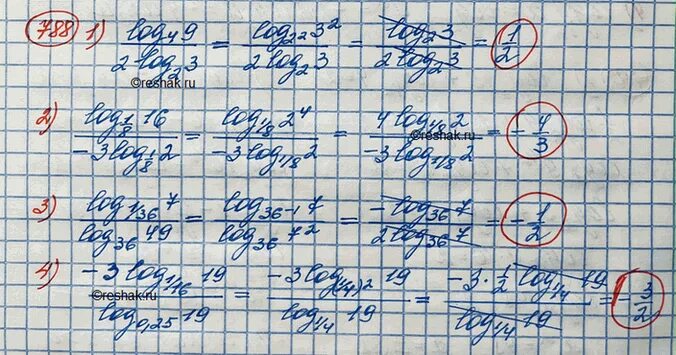 788 1) log₄9 / 2log₂3 = log₂²3² / 2log₂3 = log₂3 / 2log₂3 = 1/2
©reshak.ru
2) log_{1/8}16 / -3log_{1/8}2 = log_{1/8}2⁴ / -3log_{1/8}2 = 4log_{1/8}2 / -3log_{1/8}2 = -4/3
©reshak.ru
3) log_{1/36}7 / log₃₆49 = log_{36⁻¹}7 / log₃₆7² = -log₃₆7 / 2log₃₆7 = -1/2
4) -3log_{1/16}19 / log_{0,25}19 = -3log_{(1/4)²}19 / log_{1/4}19 = -3·1/2 log_{1/4}19 / log_{1/4}19 = -3/2
©reshak.ru